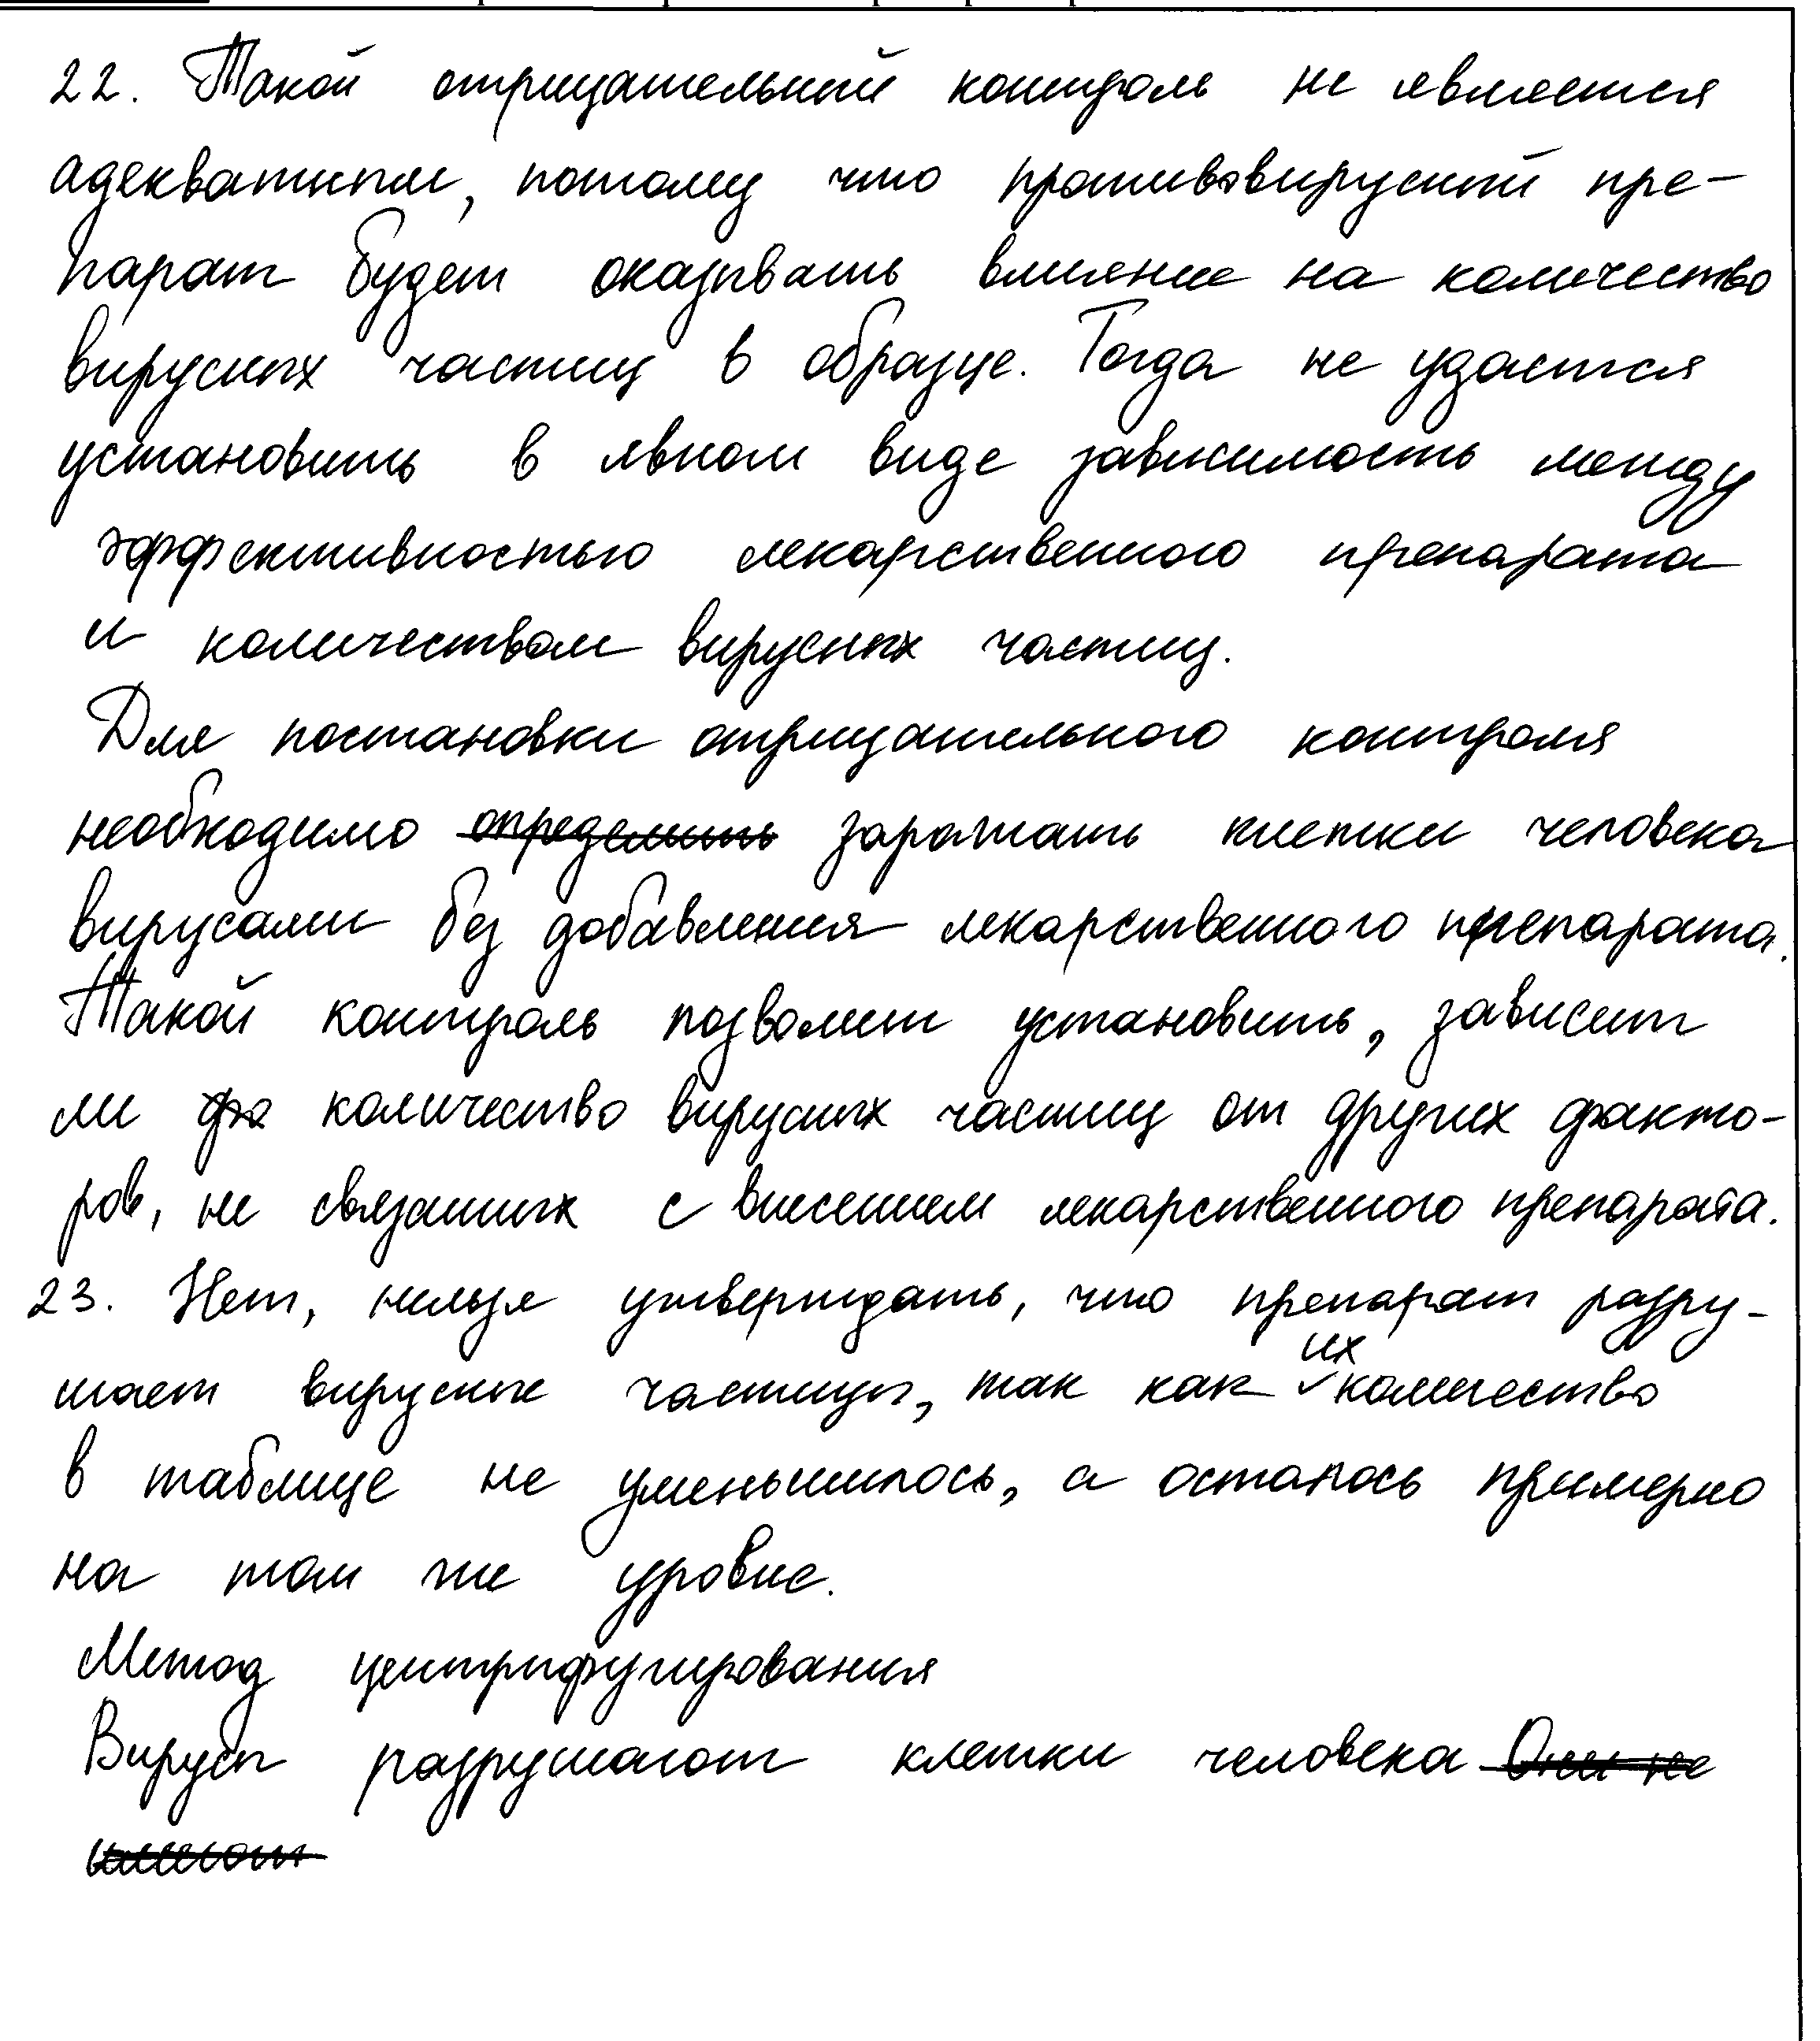 22. Такой отрицательный контроль не является
адекватным, потому что противовирусный пре-
парат будет оказывать влияние на количество
вирусных частиц в образце. Тогда не удастся
установить в явном виде зависимость между
эффективностью лекарственного препарата
и количеством вирусных частиц.
Для постановки отрицательного контроля
необходимо определить заражать клетки человека
вирусами без добавления лекарственного препарата.
Такой контроль позволит установить, зависит
ли количество вирусных частиц от других факто-
ров, не связанных с внесением лекарственного препарата.
23. Нет, нельзя утверждать, что препарат разру-
шает вирусные частицы, так как их количество
в таблице не уменьшилось, а осталось примерно
на том же уровне.
Метод центрифугирования
Вирусы разрушают клетки человека Они не
имеют